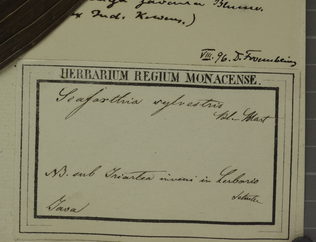 javana Blume.
Ind. Kewens.)
VIII. 96. D.
HERBARIUM REGIUM MONACENSE.
Seaforthia sylvestris
Mart
NB. sub Iriartea inveni in herbario
Java